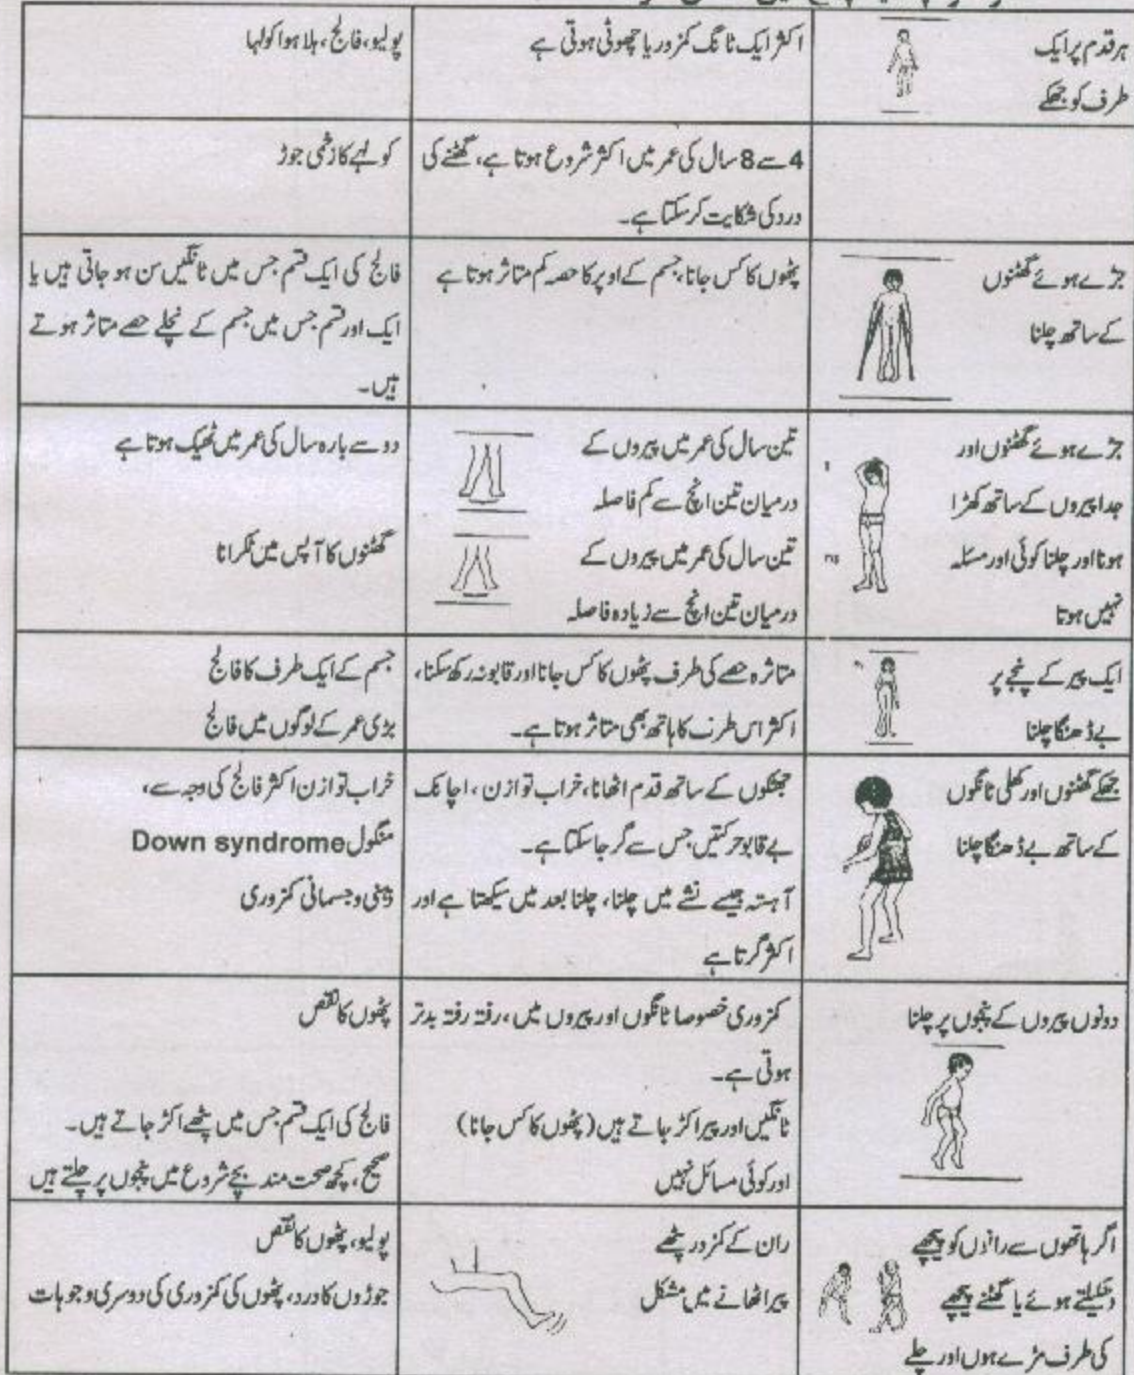 ہر قدم پر ایک
طرف کو جھکے
اکثر ایک ٹانگ کمزور یا چھوٹی ہوتی ہے
پولیو، فالج، ہلا ہوا کولہا
4 سے 8 سال کی عمر میں اکثر شروع ہوتا ہے، گھٹنے کی
درد کی شکایت کر سکتا ہے۔
کولہے کا زخمی جوڑ
جڑے ہوئے گھٹنوں
کے ساتھ چلنا
پٹھوں کا کس جانا، جسم کے اوپر کا حصہ کم متاثر ہوتا ہے
فالج کی ایک قسم جس میں ٹانگیں سن ہو جاتی ہیں یا
ایک اور قسم جس میں جسم کے نچلے حصے متاثر ہوتے
ہیں۔
جڑے ہوئے گھٹنوں اور
جدا پیروں کے ساتھ کھڑا
ہونا اور چلنا کوئی اور مسئلہ
نہیں ہوتا
تین سال کی عمر میں پیروں کے
درمیان تین انچ سے کم فاصلہ
تین سال کی عمر میں پیروں کے
درمیان تین انچ سے زیادہ فاصلہ
دو سے بارہ سال کی عمر میں ٹھیک ہوتا ہے
گھٹنوں کا آپس میں ٹکرانا
ایک پیر کے پنجے پر
بے ڈھنگا چلنا
متاثرہ حصے کی طرف پٹھوں کا کس جانا اور قابو نہ رکھ سکنا،
اکثر اس طرف کا ہاتھ بھی متاثر ہوتا ہے۔
جسم کے ایک طرف کا فالج
بڑی عمر کے لوگوں میں فالج
جھکے گھٹنوں اور کھلی ٹانگوں
کے ساتھ بے ڈھنگا چلنا
جھٹکوں کے ساتھ قدم اٹھانا، خراب توازن، اچانک
بے قابو حرکتیں جس سے گر جا سکتا ہے۔
آہستہ جیسے نشے میں چلنا، چلنا بعد میں سیکھتا ہے اور
اکثر گرتا ہے
خراب توازن اکثر فالج کی وجہ سے،
منگول Down syndrome
ذہنی و جسمانی کمزوری
دونوں پیروں کے پنجوں پر چلنا
کمزوری خصوصا ٹانگوں اور پیروں میں، رفتہ رفتہ بدتر
ہوتی ہے۔
ٹانگیں اور پیر اکڑ جاتے ہیں (پٹھوں کا کس جانا)
اور کوئی مسائل نہیں
پٹھوں کا نقص
فالج کی ایک قسم جس میں پٹھے اکڑ جاتے ہیں۔
صحیح، کچھ صحت مند بچے شروع میں پنجوں پر چلتے ہیں
اگر ہاتھوں سے رانوں کو پیچھے
دھکیلتے ہوئے یا گھٹنے پیچھے
کی طرف مڑے ہوں اور چلے
ران کے کمزور پٹھے
پیر اٹھانے میں مشکل
پولیو، پٹھوں کا نقص
جوڑوں کا درد، پٹھوں کی کمزوری کی دوسری وجوہات